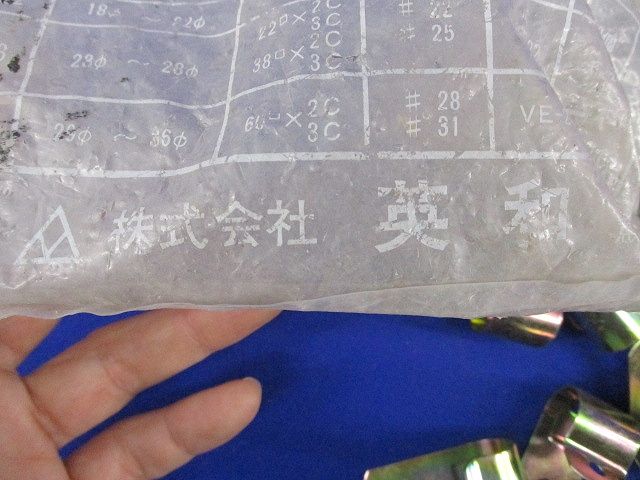 18 ～ 22φ 22□×2C 3C # 22
# 25
23φ ～ 28φ 38□×2C 3C
～ 36φ 60□×2C 3C # 28
# 31 VE
株式会社 英和